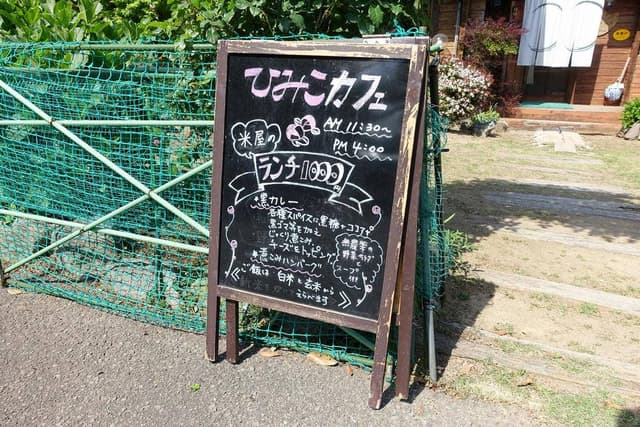 ひみこカフェ
AM 11:30〜
PM 4:00
米屋の
ランチ1000円
★黒カレー
各種スパイスに黒糖やココア
黒ゴマ等を加え
じっくり煮こみ
チーズをトッピング
★煮こみハンバーグ
《ご飯は 白米と玄米から
えらべます》
無農薬の
野菜サラダ
と
スープ付